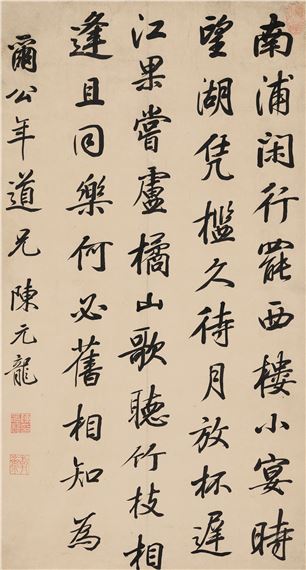 南浦闲行罷西樓小宴時
望湖凭檻久待月放杯遲
江果嘗盧橘山歌聽竹枝相
逢且同樂何必舊相知為
爾公年道兄 陳元龍